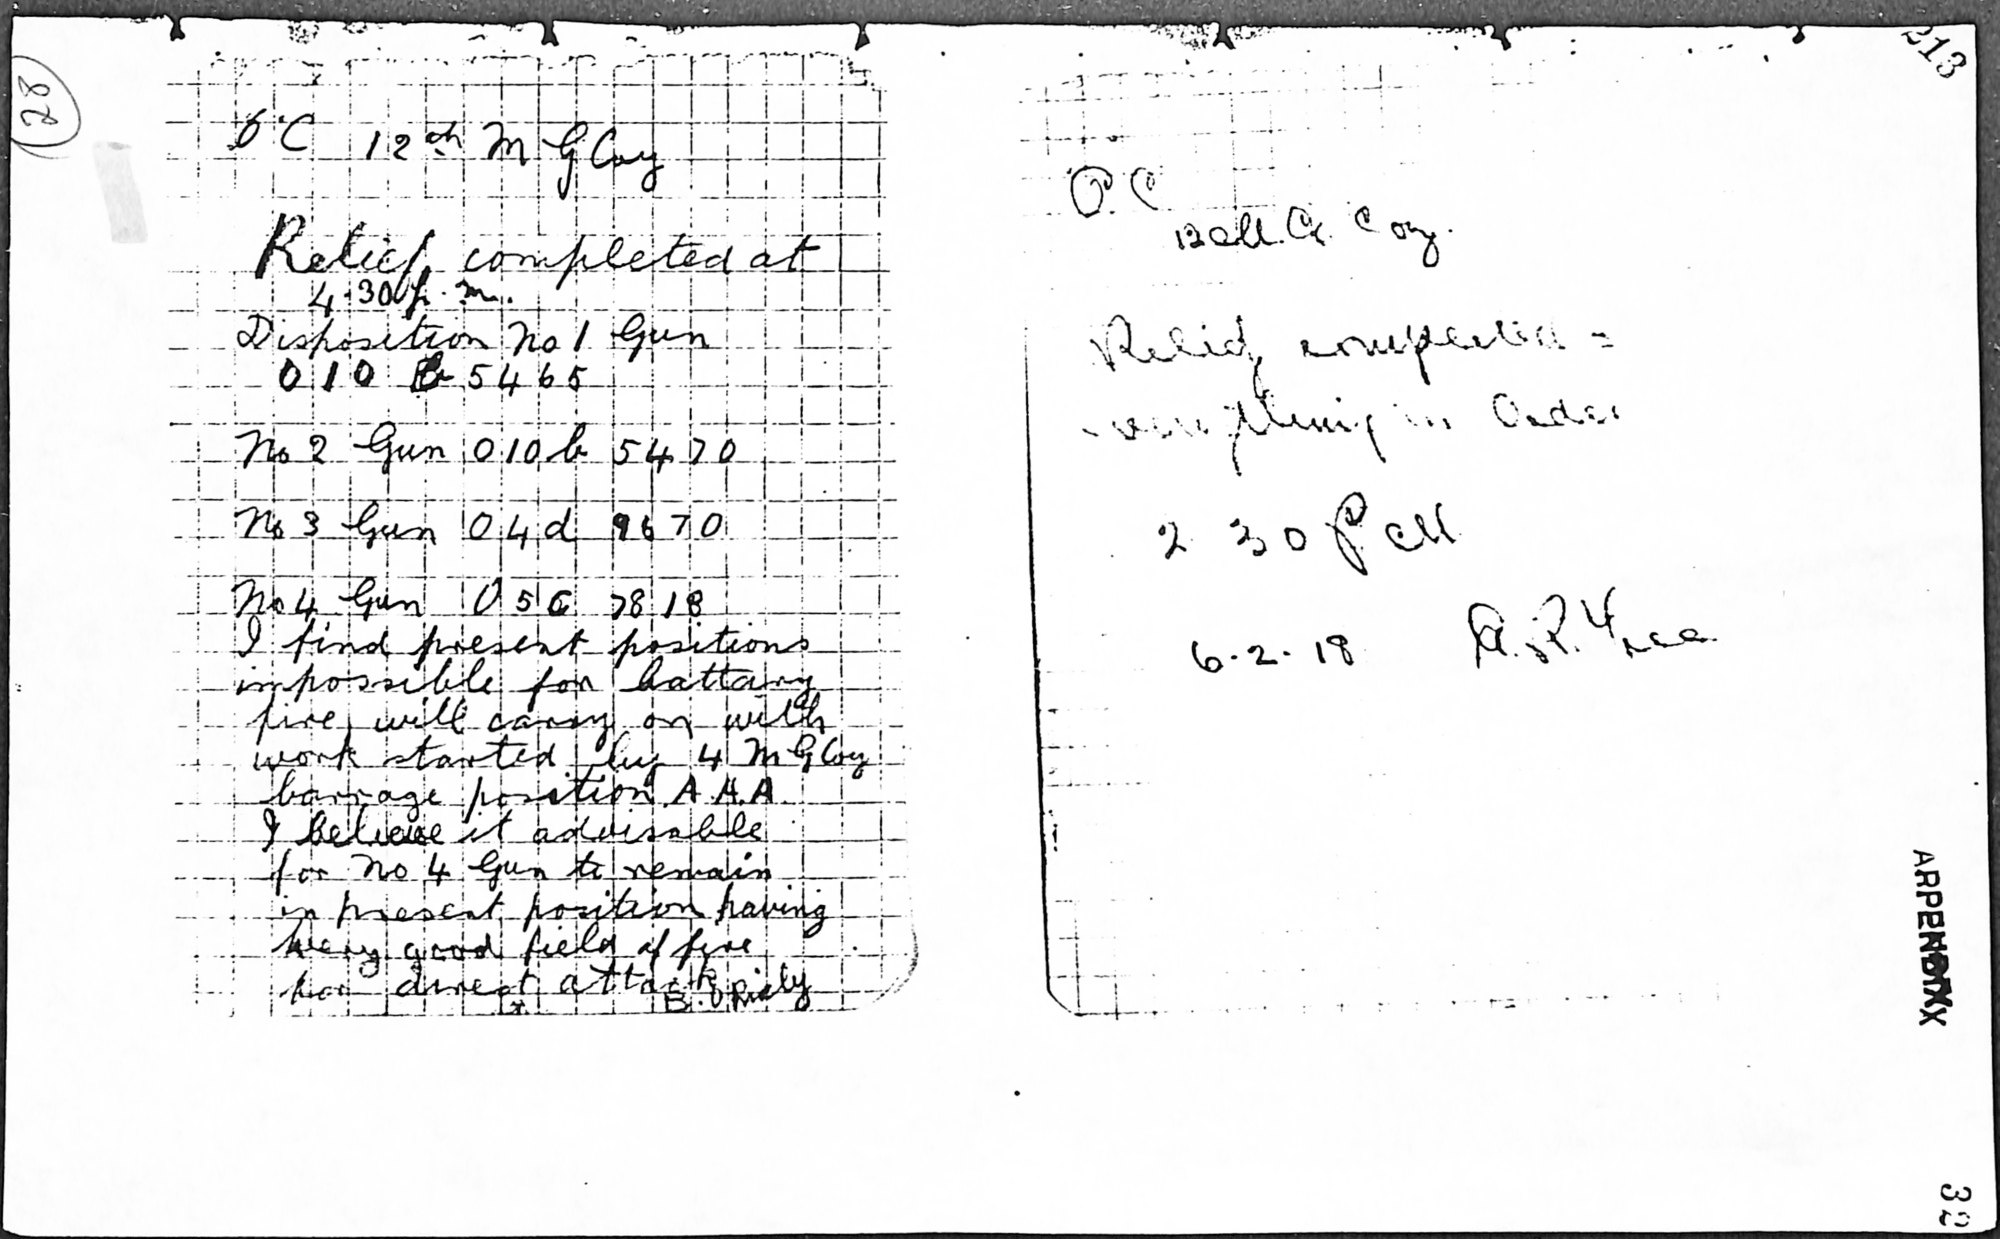 28
O.C 12th M G Coy
Relief completed at
4.30 p.m.
Disposition No 1 Gun
O 10 B 5465
No 2 Gun O 10 b 5470
No 3 Gun O 4 d 9670
No 4 Gun O 5 C 7818
I find present positions
impossible for battary
fire, will carry on with
work started by 4 M G Coy
barrage position A.H.A
I believe it advisable
for No 4 Gun to remain
in present position having
very good field of fire
for direct attack
213
O.C
12 M.G. Coy.
Relief completed =
everything in Order
2 30 P M
6.2.18
APPENDIX
32